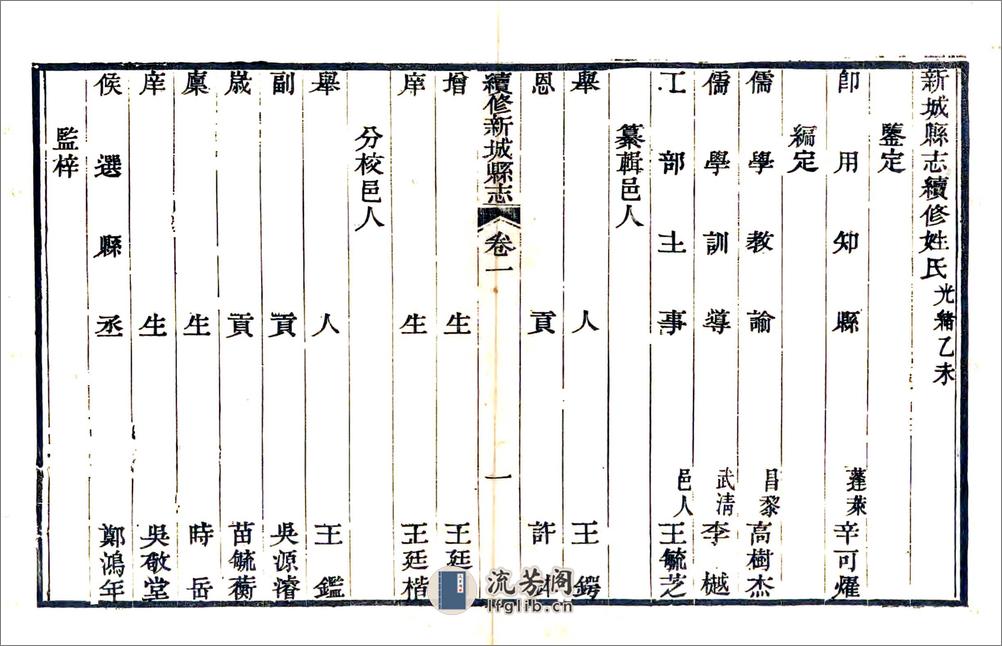 新城縣志續修姓氏光緒乙未
鑒定
即用知縣 蓬萊辛可燿
編定
儒學教諭 昌黎高樹杰
儒學訓導 武淸李樾
工部主事 邑人王毓芝
纂輯邑人
舉人 王鍔
恩貢 許
續修新城縣志 卷一 一
增生 王廷
庠生 王廷楷
分校邑人
舉人 王鑑
副貢 吳源濬
歲貢 苗毓蘅
廩生 時岳
庠生 吳敬堂
候選縣丞 鄭鴻年
監梓
流芳阁
lfglib.cn